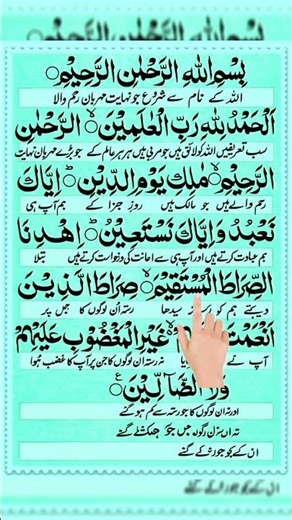 بِسْمِ اللهِ الرَّحْمٰنِ الرَّحِيْمِ
اللہ کے نام سے شروع جو نہایت مہربان رحم والا
اَلْحَمْدُ لِلّٰهِ رَبِّ الْعٰلَمِيْنَ ۙ الرَّحْمٰنِ
سب تعریفیں اللہ کو لائق ہیں جو مربی ہیں ہر ہر عالم کے جو بڑے مہربان نہایت
الرَّحِيْمِ ۙ مٰلِكِ يَوْمِ الدِّيْنِ ؕ اِيَّاكَ
رحم والے ہیں جو مالک ہیں روز جزا کے ہم آپ ہی
نَعْبُدُ وَاِيَّاكَ نَسْتَعِيْنُ ؕ اِهْدِنَا
ہم عبادت کرتے ہیں اور آپ ہی سے اعانت کی درخواست کرتے ہیں بتلا
الصِّرَاطَ الْمُسْتَقِيْمَ ۙ صِرَاطَ الَّذِيْنَ
دیجئے ہم کو سیدھا رستہ ان لوگوں کا جن پر
اَنْعَمْتَ غَيْرِ الْمَغْضُوْبِ عَلَيْهِمْ
آپ نے نہ رستہ ان لوگوں کا جن پر آپ کا غضب ہوا
وَلَا الضَّآلِّيْنَ
اور نہ ان لوگوں کا جو رستہ سے گم ہو گئے